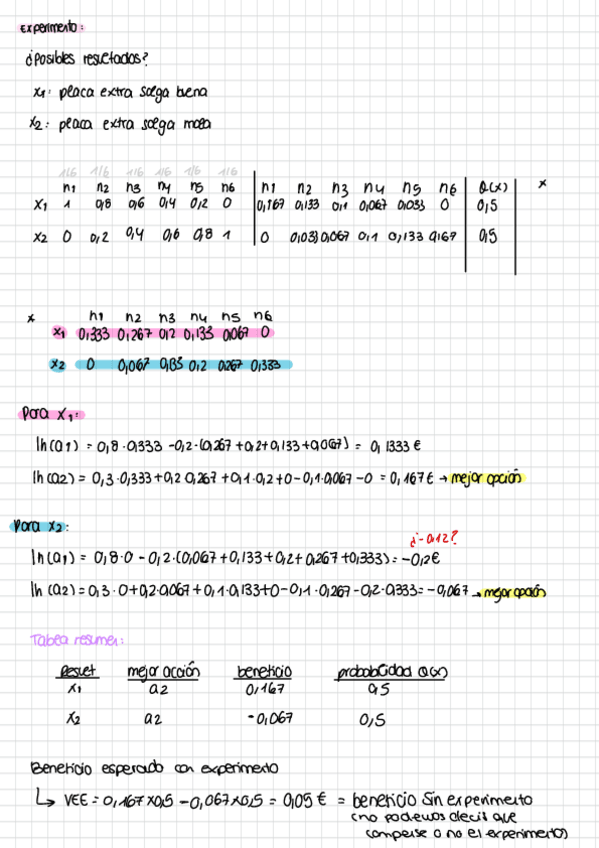 Experimento:
¿Posibles resultados?
x1: placa extra salga buena
x2: placa extra salga mala
1/6 1/6 1/6 1/6 1/6 1/6
n1 n2 n3 n4 n5 n6 n1 n2 n3 n4 n5 n6 Q(x) *
x1 1 0,8 0,6 0,4 0,2 0 0,167 0,133 0,1 0,067 0,033 0 0,5
x2 0 0,2 0,4 0,6 0,8 1 0 0,033 0,067 0,1 0,133 0,167 0,5
* n1 n2 n3 n4 n5 n6
x1 0,333 0,267 0,2 0,133 0,067 0
x2 0 0,067 0,133 0,2 0,267 0,333
Para x1:
In(a1) = 0,8·0,333 -0,2·(0,267+0,2+0,133+0,067) = 0,1333€
In(a2) = 0,3·0,333+0,2·0,267+0,1·0,2+0-0,1·0,067-0 = 0,167€ → mejor opción
Para x2:
¿-0,12?
In(a1) = 0,8·0 - 0,2·(0,067+0,133+0,2+0,267+0,333) = -0,2€
In(a2) = 0,3·0+0,2·0,067+0,1·0,133+0-0,1·0,267-0,2·0,333 = -0,067 → mejor opción
Tabla resumen:
Result mejor acción beneficio probabilidad Q(x)
x1 a2 0,167 0,5
x2 a2 -0,067 0,5
Beneficio esperado con experimento
↳ VEE = 0,167×0,5 - 0,067×0,5 = 0,05€ = beneficio sin experimento
(no podemos decir que
compense o no el experimento)